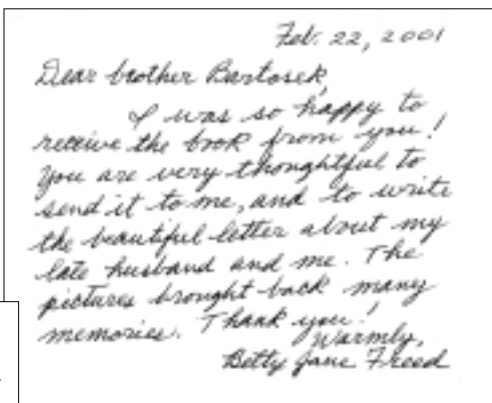 Feb. 22, 2001
Dear brother Bartosek,
I was so happy to
receive the book from you!
You are very thoughtful to
send it to me, and to write
the beautiful letter about my
late husband and me. The
pictures brought back many
memories. Thank you!
Warmly,
Betty Jane Freed